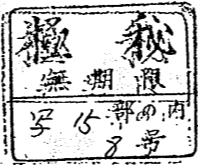 極秘
無期限
写 15部の内
8号